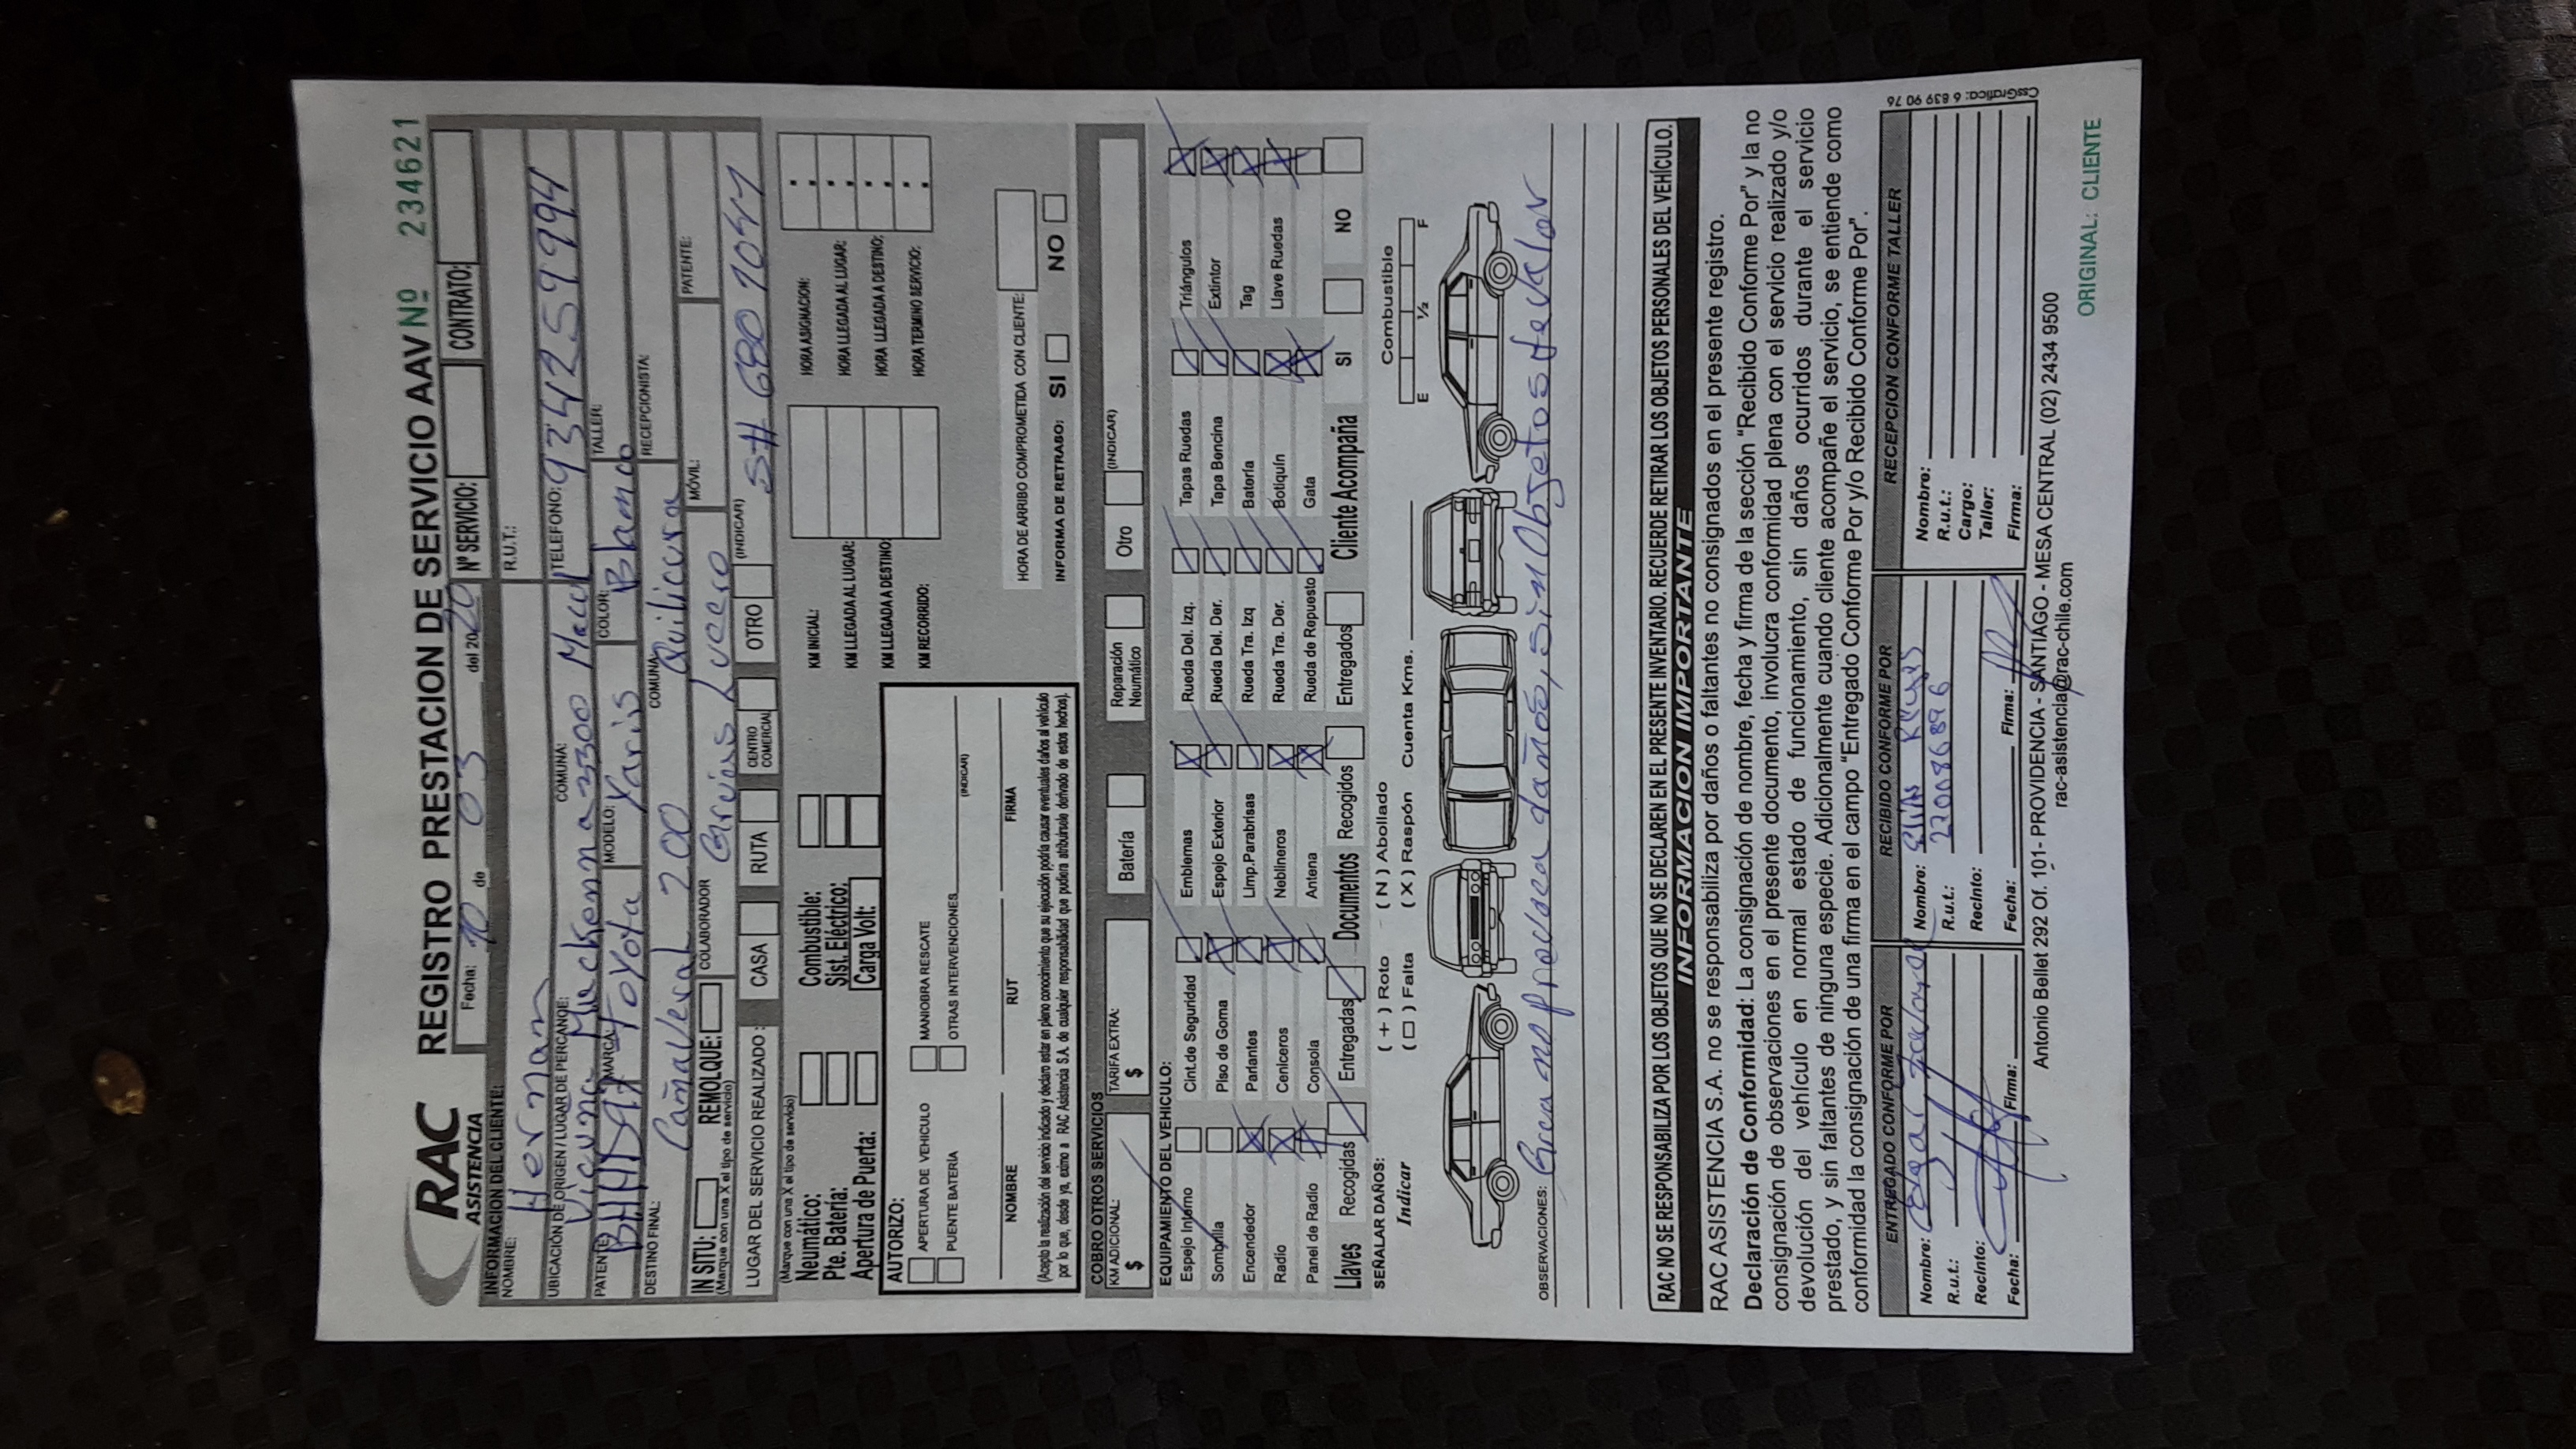 RAC
ASISTENCIA
REGISTRO PRESTACION DE SERVICIO AAV Nº 234621
Fecha: 10 de 03 del 2020 Nº SERVICIO: CONTRATO:
INFORMACION DEL CLIENTE:
NOMBRE: Hernan R.U.T.:
UBICACIÓN DE ORIGEN / LUGAR DE PERCANCE: Vicuna Mackenna 3300 COMUNA: Macul TELEFONO: 934259994
PATENTE: MARCA: Toyota MODELO: Yaris COLOR: Blanco TALLER:
DESTINO FINAL: Cañaveral 200 COMUNA: Quilicura RECEPCIONISTA:
IN SITU: REMOLQUE: COLABORADOR Gruias Lucero MÓVIL: PATENTE:
(Marque con una X el tipo de servicio)
LUGAR DEL SERVICIO REALIZADO: CASA RUTA CENTRO COMERCIAL OTRO (INDICAR) S# 680 1041
(Marque con una X el tipo de servicio)
Neumático: Combustible:
Pte. Batería: Sist. Eléctrico:
Apertura de Puerta: Carga Volt:
KM INICIAL: HORA ASIGNACION:
KM LLEGADA AL LUGAR: HORA LLEGADA AL LUGAR:
KM LLEGADA A DESTINO: HORA LLEGADA A DESTINO:
KM RECORRIDO: HORA TERMINO SERVICIO:
AUTORIZO:
APERTURA DE VEHICULO MANIOBRA RESCATE
PUENTE BATERÍA OTRAS INTERVENCIONES (INDICAR)
NOMBRE RUT FIRMA
HORA DE ARRIBO COMPROMETIDA CON CLIENTE:
INFORMA DE RETRASO: SI NO
(Acepto la realización del servicio indicado y declaro estar en pleno conocimiento que su ejecución podría causar eventuales daños al vehículo
por lo que, desde ya, eximo a RAC Asistencia S.A. de cualquier responsabilidad que pudiera atribuírsele derivado de estos hechos).
COBRO OTROS SERVICIOS
KM ADICIONAL: $ TARIFA EXTRA: $ Batería Reparación Neumático Otro (INDICAR)
EQUIPAMIENTO DEL VEHICULO:
Espejo Interno Cint.de Seguridad Emblemas Rueda Del. Izq. Tapas Ruedas Triángulos
Sombrilla Piso de Goma Espejo Exterior Rueda Del. Der. Tapa Bencina Extintor
Encendedor Parlantes Limp.Parabrisas Rueda Tra. Izq Batería Tag
Radio Ceniceros Neblineros Rueda Tra. Der. Botiquín Llave Ruedas
Panel de Radio Consola Antena Rueda de Repuesto Gata
Llaves Recogidas Entregadas Documentos Recogidos Entregados Cliente Acompaña SI NO
SEÑALAR DAÑOS: ( + ) Roto ( N ) Abollado Combustible
Indicar ( □ ) Falta ( X ) Raspón Cuenta Kms. E ½ F
OBSERVACIONES: Grua no provoca daños, sin Objetos de valor
RAC NO SE RESPONSABILIZA POR LOS OBJETOS QUE NO SE DECLAREN EN EL PRESENTE INVENTARIO. RECUERDE RETIRAR LOS OBJETOS PERSONALES DEL VEHÍCULO.
INFORMACION IMPORTANTE
RAC ASISTENCIA S.A. no se responsabiliza por daños o faltantes no consignados en el presente registro.
Declaración de Conformidad: La consignación de nombre, fecha y firma de la sección "Recibido Conforme Por" y la no
consignación de observaciones en el presente documento, involucra conformidad plena con el servicio realizado y/o
devolución del vehículo en normal estado de funcionamiento, sin daños ocurridos durante el servicio
prestado, y sin faltantes de ninguna especie. Adicionalmente cuando cliente acompañe el servicio, se entiende como
conformidad la consignación de una firma en el campo "Entregado Conforme Por y/o Recibido Conforme Por".
ENTREGADO CONFORME POR RECIBIDO CONFORME POR RECEPCION CONFORME TALLER
Nombre: Nombre: Nombre:
R.u.t.: R.u.t.: 270086896 R.u.t.:
Recinto: Recinto: Cargo:
Taller:
Fecha: Firma: Fecha: Firma: Firma:
Antonio Bellet 292 Of. 101- PROVIDENCIA - SANTIAGO - MESA CENTRAL (02) 2434 9500
rac-asistencia@rac-chile.com
ORIGINAL: CLIENTE
CssGrafica: 6 839 90 76